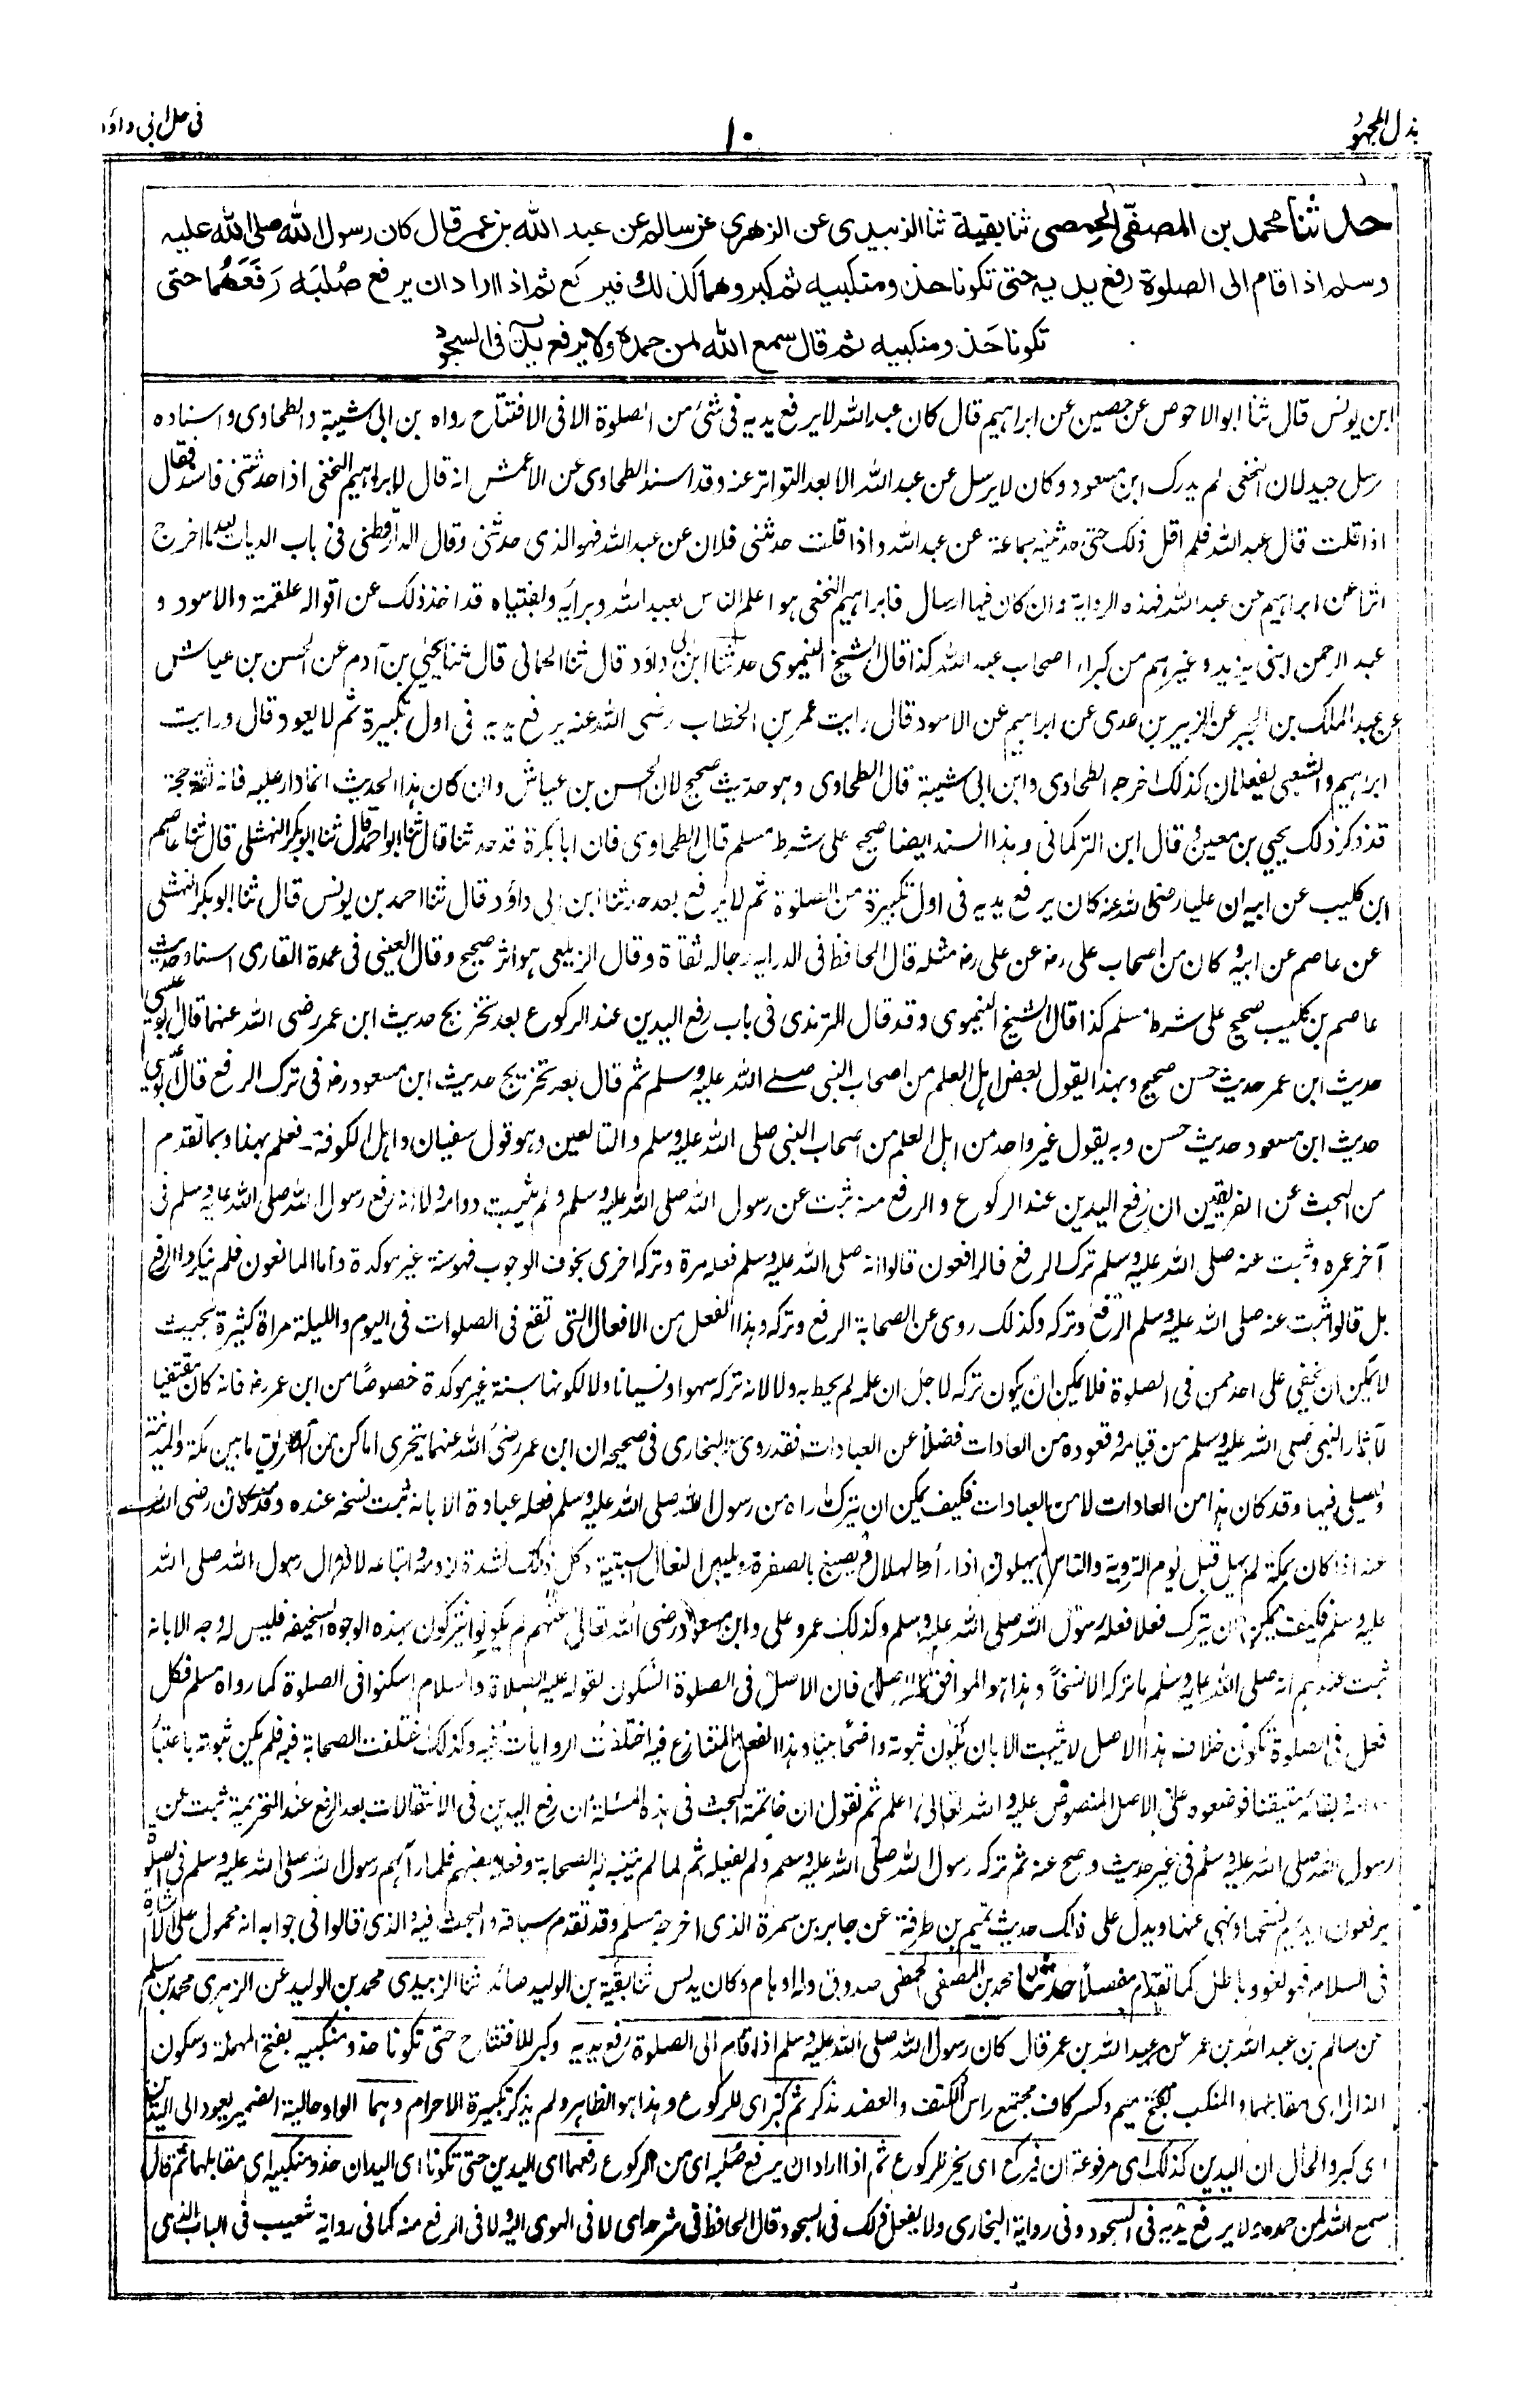 بذل المجهود
١٠
في حل ابي داؤد
حدثنا محمد بن المصفّى الحمصي ثنا بقية ثنا الزبيدي عن الزهري عن سالم عن عبد الله بن عمر قال كان رسول الله صلى الله عليه
وسلم اذا قام الى الصلوة رفع يديه حتى تكونا حذو منكبيه ثم كبر وهما كذلك فيركع ثم اذا اراد ان يرفع صُلبَه رَفَعَهُما حتى
تكونا حَذو منكبيه ثم قال سمع الله لمن حمده ولا يرفع يديه في السجود
ابن يونس قال ثنا ابو الاحوص عن حصين عن ابراهيم قال كان عبد الله لا يرفع يديه في شئ من الصلوة الا في الافتتاح رواه بن ابي شيبة والطحاوى واسناده
مرسل جيد لان النخعي لم يدرك ابن مسعود وكان لا يرسل عن عبد الله الا بعد التواتر عنه وقد اسند الطحاوى عن الاعمش انه قال لابراهيم النخعي اذا حدثتني فاسند فقال
اذا قلت قال عبد الله فلم اقل ذلك حتى حدثنيه جماعة عن عبد الله واذا قلت حدثني فلان عن عبد الله فهو الذي حدثني وقال الدارقطني في باب الديات بعد ما اخرج
اثرا عن ابراهيم عن عبد الله فهذه الرواية وان كان فيها ارسال فابراهيم النخعي هو اعلم الناس بعبد الله وبرأيه وبفتياه قد اخذ ذلك عن اقواله علقمة والاسود و
عبد الرحمن ابنى يزيد وغيرهم من كبراء اصحاب عبد الله كذا قال الشيخ النيموى حدثنا ابن ابي داود قال ثنا الحماني قال ثنا يحيى بن آدم عن الحسن بن عياش
عن عبد الملك بن ابجر عن الزبير بن عدى عن ابراهيم عن الاسود قال رايت عمر بن الخطاب رضي الله عنه يرفع يديه في اول تكبيرة ثم لا يعود قال ورايت
ابراهيم والشعبي يفعلان كذلك اخرجه الطحاوى وابن ابي شيبة قال الطحاوى وهو حديث صحيح لان الحسن بن عياش وان كان هذا الحديث انما دار عليه فانه ثقة حجة
قد ذكر ذلك يحيى بن معين وقال ابن التركماني وهذا السند ايضا صحيح على شرط مسلم قال الطحاوى فان ابا بكرة قد حدثنا قال ثنا ابو احمد قال ثنا ابو بكر النهشلى قال ثنا عاصم
ابن كليب عن ابيه ان عليا رضي الله عنه كان يرفع يديه في اول تكبيرة من الصلوة ثم لا يرفع بعد حدثنا ابن ابي داؤد قال ثنا احمد بن يونس قال ثنا ابو بكر النهشلى
عن عاصم عن ابيه وكان من اصحاب على رض عن على رض مثله قال الحافظ في الدراية رجاله ثقاة وقال الزيلعي هو اثر صحيح وقال العيني في عمدة القارى اسناد حديث
عاصم بن كليب صحيح على شرط مسلم كذا قال الشيخ النيموى وقد قال الترمذى في باب رفع اليدين عند الركوع بعد تخريج حديث ابن عمر رضي الله عنهما قال ابو عيسى
حديث ابن عمر حديث حسن صحيح وبهذا يقول بعض اهل العلم من اصحاب النبي صلى الله عليه وسلم ثم قال بعد تخريج حديث ابن مسعود رض في ترك الرفع قال ابو عيسى
حديث ابن مسعود حديث حسن وبه يقول غير واحد من اهل العلم من اصحاب النبي صلى الله عليه وسلم والتابعين وهو قول سفيان واهل الكوفة۔ فعلم بهذا وبما تقدم
من البحث عن الفريقين ان رفع اليدين عند الركوع والرفع منه ثبت عن رسول الله صلى الله عليه وسلم ولم يثبت دوامه ولا انه رفع رسول الله صلى الله عليه وسلم في
آخر عمره وثبت عنه صلى الله عليه وسلم ترك الرفع فالرافعون قالوا انه صلى الله عليه وسلم فعله مرة وتركه اخرى بخوف الوجوب فهو سنة غير موكدة واما المانعون فلم ينكروا الرفع
بل قالوا ثبت عنه صلى الله عليه وسلم الرفع وتركه وكذلك روى عن الصحابة الرفع وتركه وهذا الفعل من الافعال التي تقع في الصلوات في اليوم والليلة مراة كثيرة بحيث
لا يمكن ان يخفى على احد ممن في الصلوة فلا يمكن ان يكون تركه لاجل ان علمه لم يحط به ولا لانه تركه سهوا ونسيانا ولا لكونها سنة غير موكدة خصوصًا من ابن عمر رض فانه كان مقتفيا
لآثار النبي صلى الله عليه وسلم من قيامه وقعوده من العادات فضلا عن العبادات فقد روى البخارى في صحيحه ان ابن عمر رضي الله عنهما يتحرى اماكن من الطريق ما بين مكة والمدينة
ويصلى فيها وقد كان هذا من العادات لا من العبادات فكيف يمكن ان يترك ما راه من رسول الله صلى الله عليه وسلم فعله عبادة الا بانه ثبت نسخه عنده وقد كان رضي الله
عنه اذا كان بمكة لم يهل قبل يوم التروية والناس يهلون اذا رأوا الهلال ويصبغ بالصفرة ويلبس النعال السبتية وكل ذلك لشدة لزومه واتباعه لافعال رسول الله صلى الله
عليه وسلم فكيف يمكن ان يترك فعلا فعله رسول الله صلى الله عليه وسلم وكذلك عمر وعلى وابن مسعود رضي الله تعالى عنهم لم يكونوا يتركون بهذه الوجوه السخيفة فليس له وجه الا بانه
ثبت عندهم انه صلى الله عليه وسلم ما تركه الا نسخًا وهذا هو الموافق للاصل فان الاصل في الصلوة السكون لقوله عليه الصلاة والسلام اسكنوا في الصلوة كما رواه مسلم فكل
فعل في الصلوة تكون خلاف هذا الاصل لا يثبت الا بان يكون ثبوته واضحًا بينا وهذا الفعل المتنازع فيه اختلفت الروايات فيه وكذلك اختلفت الصحابة فيه فلم يكن ثبوته باعتبار
وبقائه متيقنا فوضعوه على الاصل المنصوص عليه والله تعالى اعلم ثم نقول ان خاتمة البحث في هذه المسئلة ان رفع اليدين في الانتقالات بعد الرفع عند التحريمة ثبت عن
رسول الله صلى الله عليه وسلم في غير حديث وصح عنه ثم تركه رسول الله صلى الله عليه وسلم ولم يفعله ثم لما لم يتنبه له الصحابة وفعله بعضهم فلما رآهم رسول الله صلى الله عليه وسلم في الصلوة
يرفعون ايديهم نسخها ونهى عنها ويدل على ذلك حديث تميم بن طرفة عن جابر بن سمرة الذي اخرجه مسلم وقد تقدم سياقه والبحث فيه والذي قالوا في جوابه انه محمول على الاشارة
في السلام فهو لغو وباطل كما تقدم مفصلا حدثنا محمد بن المصفى الحمصى صدوق وله اوهام وكان يدلس ثنا بقية بن الوليد صائد ثنا الزبيدى محمد بن الوليد عن الزهرى محمد بن مسلم
عن سالم بن عبد الله بن عمر عن عبد الله بن عمر قال كان رسول الله صلى الله عليه وسلم اذا قام الى الصلوة رفع يديه وكبر للافتتاح حتى تكونا حذو منكبيه بفتح المهملة وسكون
الذال اى مقابلهما والمنكب بفتح ميم وكسر كاف مجتمع راس الكتف والعضد يذكر ثم كبر اى للركوع وهذا هو الظاهر ولم يذكر تكبيرة الاحرام وهما الواو حالية الضمير يعود الى اليدين
اى كبر والحال ان اليدين كذلك اى مرفوعة ان فيركع اى يخر للركوع ثم اذا اراد ان يرفع صلبه اى من الركوع رفعهما اى اليدين حتى تكونا اى اليدان حذو منكبيه اى مقابلهما ثم قال
سمع الله لمن حمده ولا يرفع يديه في السجود وفي رواية البخارى ولا يفعل ذلك في السجود قال الحافظ في شرحه اى لا في الهوى اليه ولا في الرفع منه كما في رواية شعيب في الباب الذى